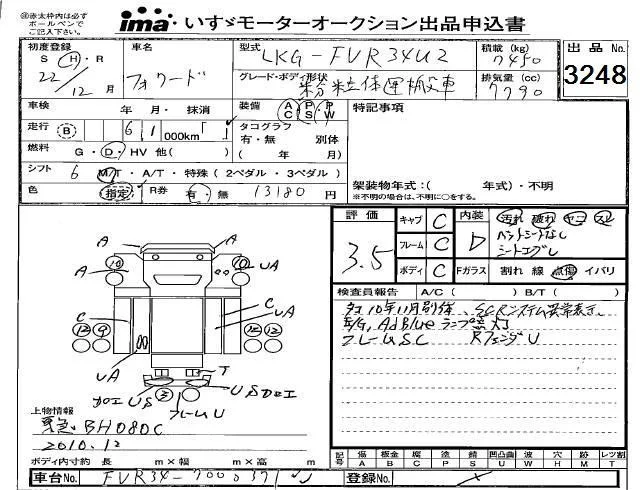 ※赤太枠内は必ず
ボールペンで
ご記入下さい。
ima いすゞモーターオークション出品申込書
初度登録 S・H・R 22/12月
車名 フォワード
型式 LKG-FVR34U2
積載(kg) 7450
出品No. 3248
グレード・ボディ形状 粉粒体運搬車
排気量(cc) 7790
車検 年・月・抹消
装備 AC PS PW
特記事項
走行 B 61 000km
タコグラフ 有・無 別体
( 年 月)
燃料 G・D・HV 他( )
シフト 6 M/T・A/T・特殊(2ペダル・3ペダル)
架装物年式:( 年式)・不明
※不明の場合は、不明に○をする。
色 指定 R券 有・無 13180円
評価 3.5
キャブ C
フレーム C
ボディ C
内装 D
汚れ 破れ ヤニ スレ
ベットシートなし
シートエグレ
Fガラス 割れ 線 点傷 イバリ
検査員報告 A/C( ) B/T( )
タコ10年11月別体 SCRシステム異常表示
E/G, AdBlueランプ点灯
フレームSC RフェンダU
A A
A UA
C C
UA
UA T
カロエUS USカロエ
フレームU
上物情報
BH080C
2010.12
ボディ内寸約 長 m×幅 m×高 m
記号 傷A 板金B 腐C 塗P 錆S 凹凸曲U 波W 穴H 跡M レツ割T
車台No. FVR34-7000371
登録No.